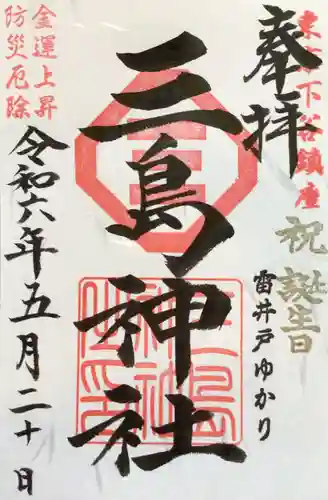 東京下谷鎮座
奉拝
祝誕生日
雷井戸ゆかり
三島神社
金運上昇
防災厄除
令和六年五月二十日